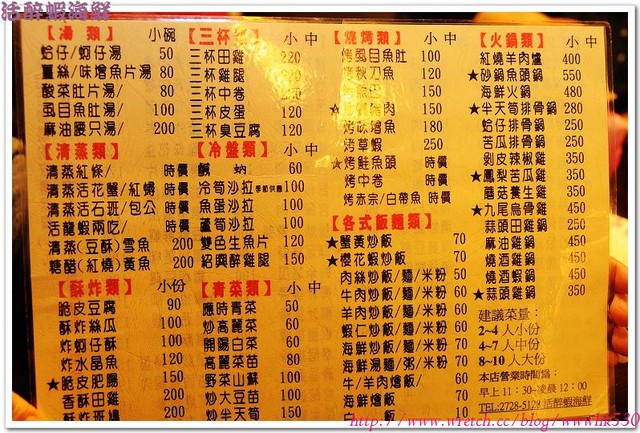 活醉蝦海鮮
【湯類】 小碗
蛤仔/蚵仔湯 50
薑絲/味噌魚片湯 80
酸菜肚片湯/ 80
虱目魚肚湯/ 100
麻油腰只湯/ 200
【清蒸類】
清蒸紅條/ 時價
清蒸活花蟹/紅蟳 時價
清蒸活石班/包公 時價
活龍蝦兩吃/ 時價
清蒸(豆酥)雪魚 200
糖醋(紅燒)黃魚 200
【酥炸類】 小份
脆皮豆腐 90
酥炸絲瓜 100
炸蚵仔酥 100
炸水晶魚 120
★脆皮肥腸 150
香酥田雞 200
酥炸斑鳩 200
【三杯 小 中
三杯田雞 220
三杯雞腿
三杯中卷
三杯皮蛋 120
三杯臭豆腐 120
【冷盤類】
鹹 蚋 60
冷筍沙拉 季節供應 100
魚蛋沙拉 100
蘆筍沙拉 100
雙色生魚片 120
紹興醉雞腿 150
【青菜類】 小 中
應時青菜 50
炒高麗菜 60
開陽白菜 60
高麗菜苗 80
野菜山蘇 100
炒大豆苗 100
炒半天筍 150
【燒烤類】 小 中
烤虱目魚肚 120
烤秋刀魚 120
150
烤味噌魚 180
烤草蝦 250
★烤鮭魚頭 時價
烤中卷 時價
烤赤宗/白帶魚 時價
【各式飯麵類】
★蟹黃炒飯 70
★櫻花蝦炒飯 70
肉絲炒飯/麵/米粉 50
牛肉炒飯/麵/米粉 60
羊肉炒飯/麵/米粉 60
蝦仁炒飯/麵/米粉 60
海鮮炒飯/麵/米粉 70
海鮮湯麵/粥/米粉 70
牛/羊肉燴飯/ 60
海鮮燴飯 70
白 飯 10
【火鍋類】 小 中
紅燒羊肉爐 400
★砂鍋魚頭鍋 550
海鮮火鍋 480
★半天筍排骨鍋 280
蛤仔排骨鍋 250
苦瓜排骨鍋 250
剝皮辣椒雞 350
★鳳梨苦瓜雞 350
蘑菇養生雞 350
★九尾烏骨雞 450
蒜頭田雞鍋 250
麻油雞鍋 450
燒酒雞鍋 450
燒酒蝦鍋 450
★蒜頭雞鍋 350
建議菜量：
2~4 人小份
4~7 人中份
8~10 人大份
本店營業時間為：
早上11：30~凌晨12：00
TEL:2728-5128 活醉蝦海鮮
http://www.wretch.cc/blog/wwwhk530